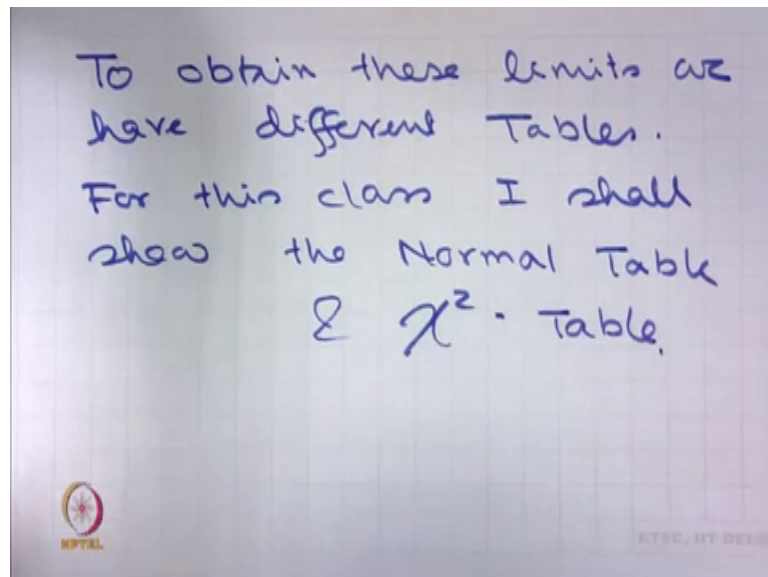 To obtain these limits we
have different Tables.
For this class I shall
show the Normal Table
& χ² - Table.
NPTEL
ETSC, IIT DELHI